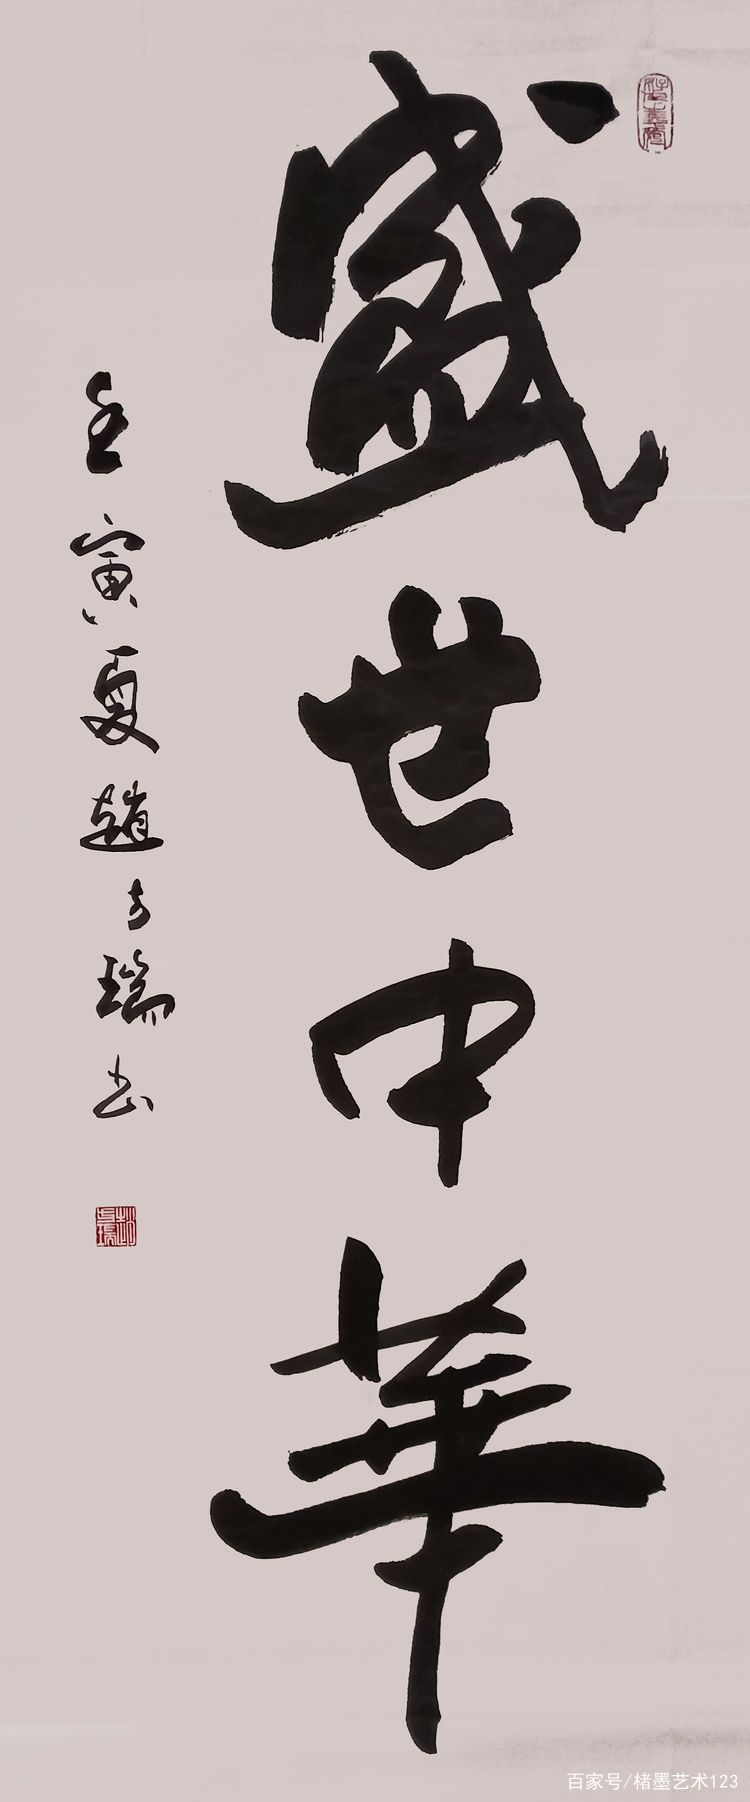 盛世中華
壬寅夏趙士瑞书
百家号/楮墨艺术123